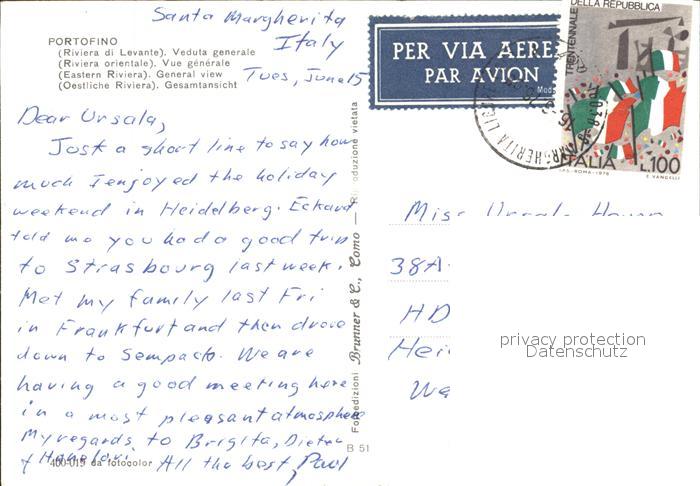 Santa Margherita
Italy
Tues, June 15
PORTOFINO
(Riviera di Levante). Veduta generale
(Riviera orientale). Vue générale
(Eastern Riviera). General view
(Oestliche Riviera). Gesamtansicht
Dear Ursala,
Just a short line to say how
much I enjoyed the holiday
weekend in Heidelberg. Eckard
told me you had a good trip
to Strasbourg last week.
Met my family last Fri
in Frankfurt and then drove
down to Sempach. We are
having a good meeting here
in a most pleasant atmosphere
My regards to Brigita, Dieter
& Hanelori. All the best, Paul
400-015 da fotocolor
B 51
Fotoedizioni Brunner & C., Como — Riproduzione vietata
PER VIA AEREA
PAR AVION
Mod.
TRENTENNALE DELLA REPUBBLICA
ITALIA L.100
I.P.S.-ROMA-1976 E. VANGELLI
Miss
38A
HD
Hei
We
privacy protection
Datenschutz